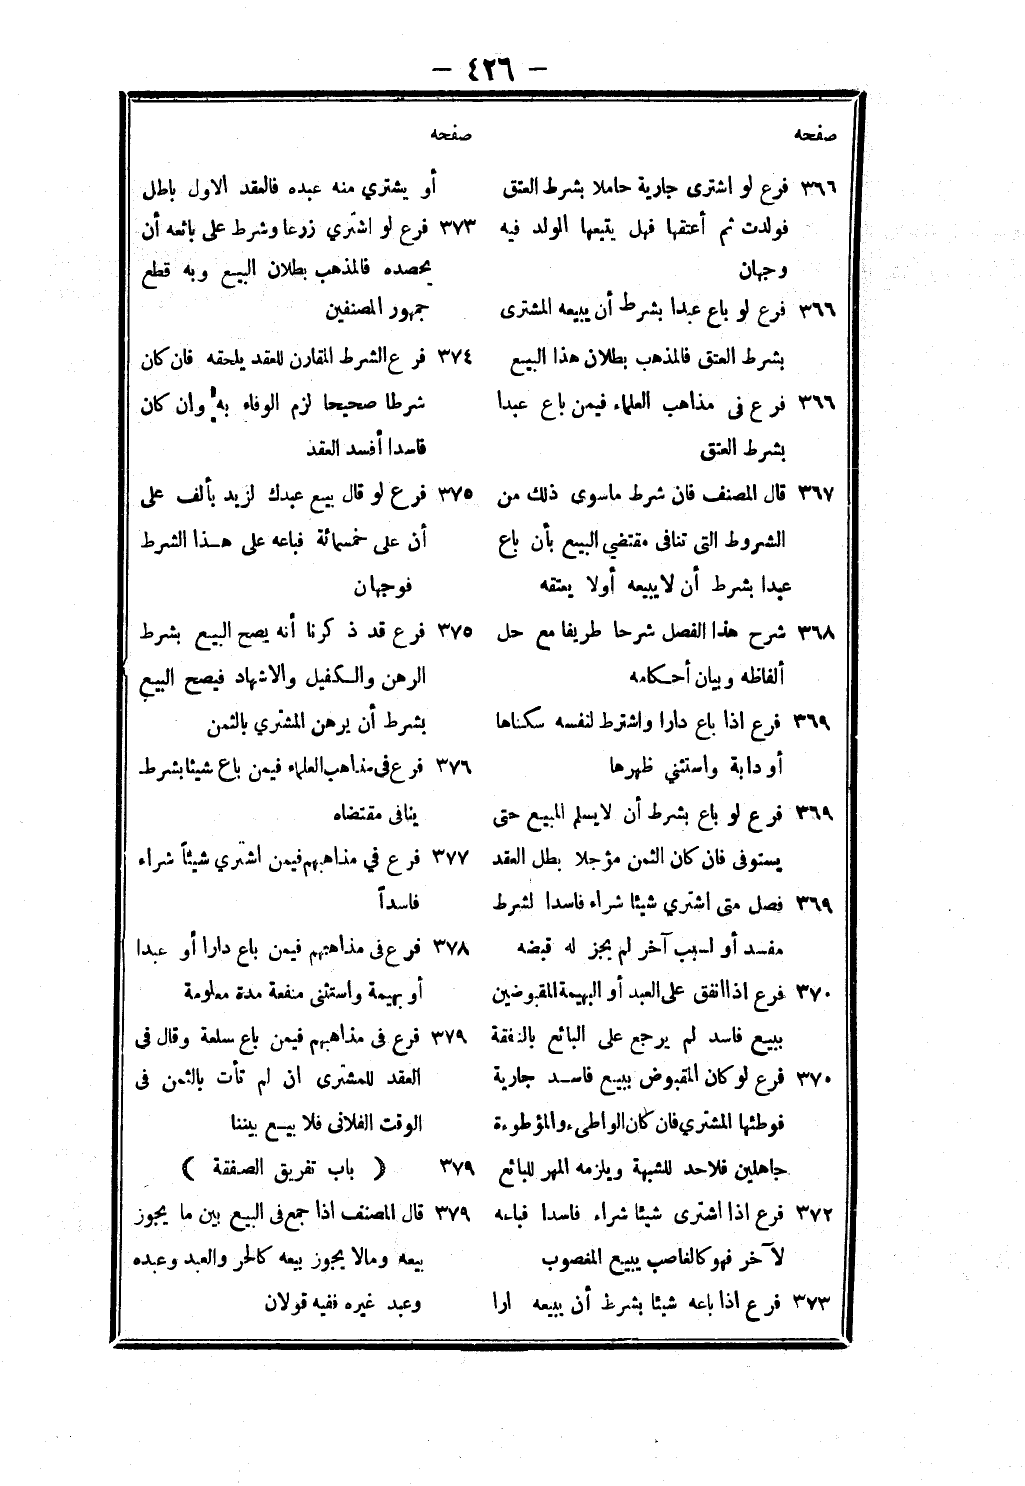 — ٤٢٦ —
صفحه
٣٦٦ فرع لو اشترى جارية حاملا بشرط العتق
فولدت ثم أعتقها فهل يتبعها الولد فيه
وجهان
٣٦٦ فرع لو باع عبدا بشرط أن يبيعه المشترى
بشرط العتق فالمذهب بطلان هذا البيع
٣٦٦ فرع فى مذاهب العلماء فيمن باع عبدا
بشرط العتق
٣٦٧ قال المصنف فان شرط ماسوى ذلك من
الشروط التى تنافى مقتضي البيع بأن باع
عبدا بشرط أن لا يبيعه أولا يعتقه
٣٦٨ شرح هذا الفصل شرحا طريفا مع حل
ألفاظه وبيان أحكامه
٣٦٩ فرع اذا باع دارا واشترط لنفسه سكناها
أو دابة واستثني ظهرها
٣٦٩ فرع لو باع بشرط أن لا يسلم المبيع حتى
يستوفى فان كان الثمن مؤجلا بطل العقد
٣٦٩ فصل متى اشتري شيئا شراء فاسدا لشرط
مفسد أو لسبب آخر لم يجز له قبضه
٣٧٠ فرع اذا انفق على العبد أو البهيمة المقبوضين
ببيع فاسد لم يرجع على البائع بالنفقة
٣٧٠ فرع لو كان المقبوض ببيع فاسد جارية
فوطئها المشتري فان كان الواطىء والموطوءة
جاهلين فلاحد للشبهة ويلزمه المهر للبائع
٣٧٢ فرع اذا اشترى شيئا شراء فاسدا فباعه
لآخر فهو كالغاصب يبيع المغصوب
٣٧٣ فرع اذا باعه شيئا بشرط أن يبيعه ارا
صفحه
أو يشتري منه عبده فالعقد الاول باطل
٣٧٣ فرع لو اشتري زرعا وشرط على بائعه أن
يحصده فالمذهب بطلان البيع وبه قطع
جمهور المصنفين
٣٧٤ فرع الشرط المقارن للعقد يلحقه فان كان
شرطا صحيحا لزم الوفاء به وان كان
فاسدا أفسد العقد
٣٧٥ فرع لو قال بيع عبدك لزيد بألف على
أن على خمسمائة فباعه على هذا الشرط
فوجهان
٣٧٥ فرع قد ذكرنا أنه يصح البيع بشرط
الرهن والكفيل والاشهاد فيصح البيع
بشرط أن يرهن المشتري بالثمن
٣٧٦ فرع فى مذاهب العلماء فيمن باع شيئا بشرط
ينافى مقتضاه
٣٧٧ فرع في مذاهبهم فيمن اشتري شيئاً شراء
فاسداً
٣٧٨ فرع فى مذاهبهم فيمن باع دارا أو عبدا
أو بهيمة واستثنى منفعة مدة معلومة
٣٧٩ فرع فى مذاهبهم فيمن باع سلعة وقال فى
العقد للمشترى ان لم تأت بالثمن فى
الوقت الفلانى فلا بيع بيننا
٣٧٩ ( باب تفريق الصفقة )
٣٧٩ قال المصنف اذا جمع فى البيع بين ما يجوز
بيعه ومالا يجوز بيعه كالحر والعبد وعبده
وعبد غيره ففيه قولان